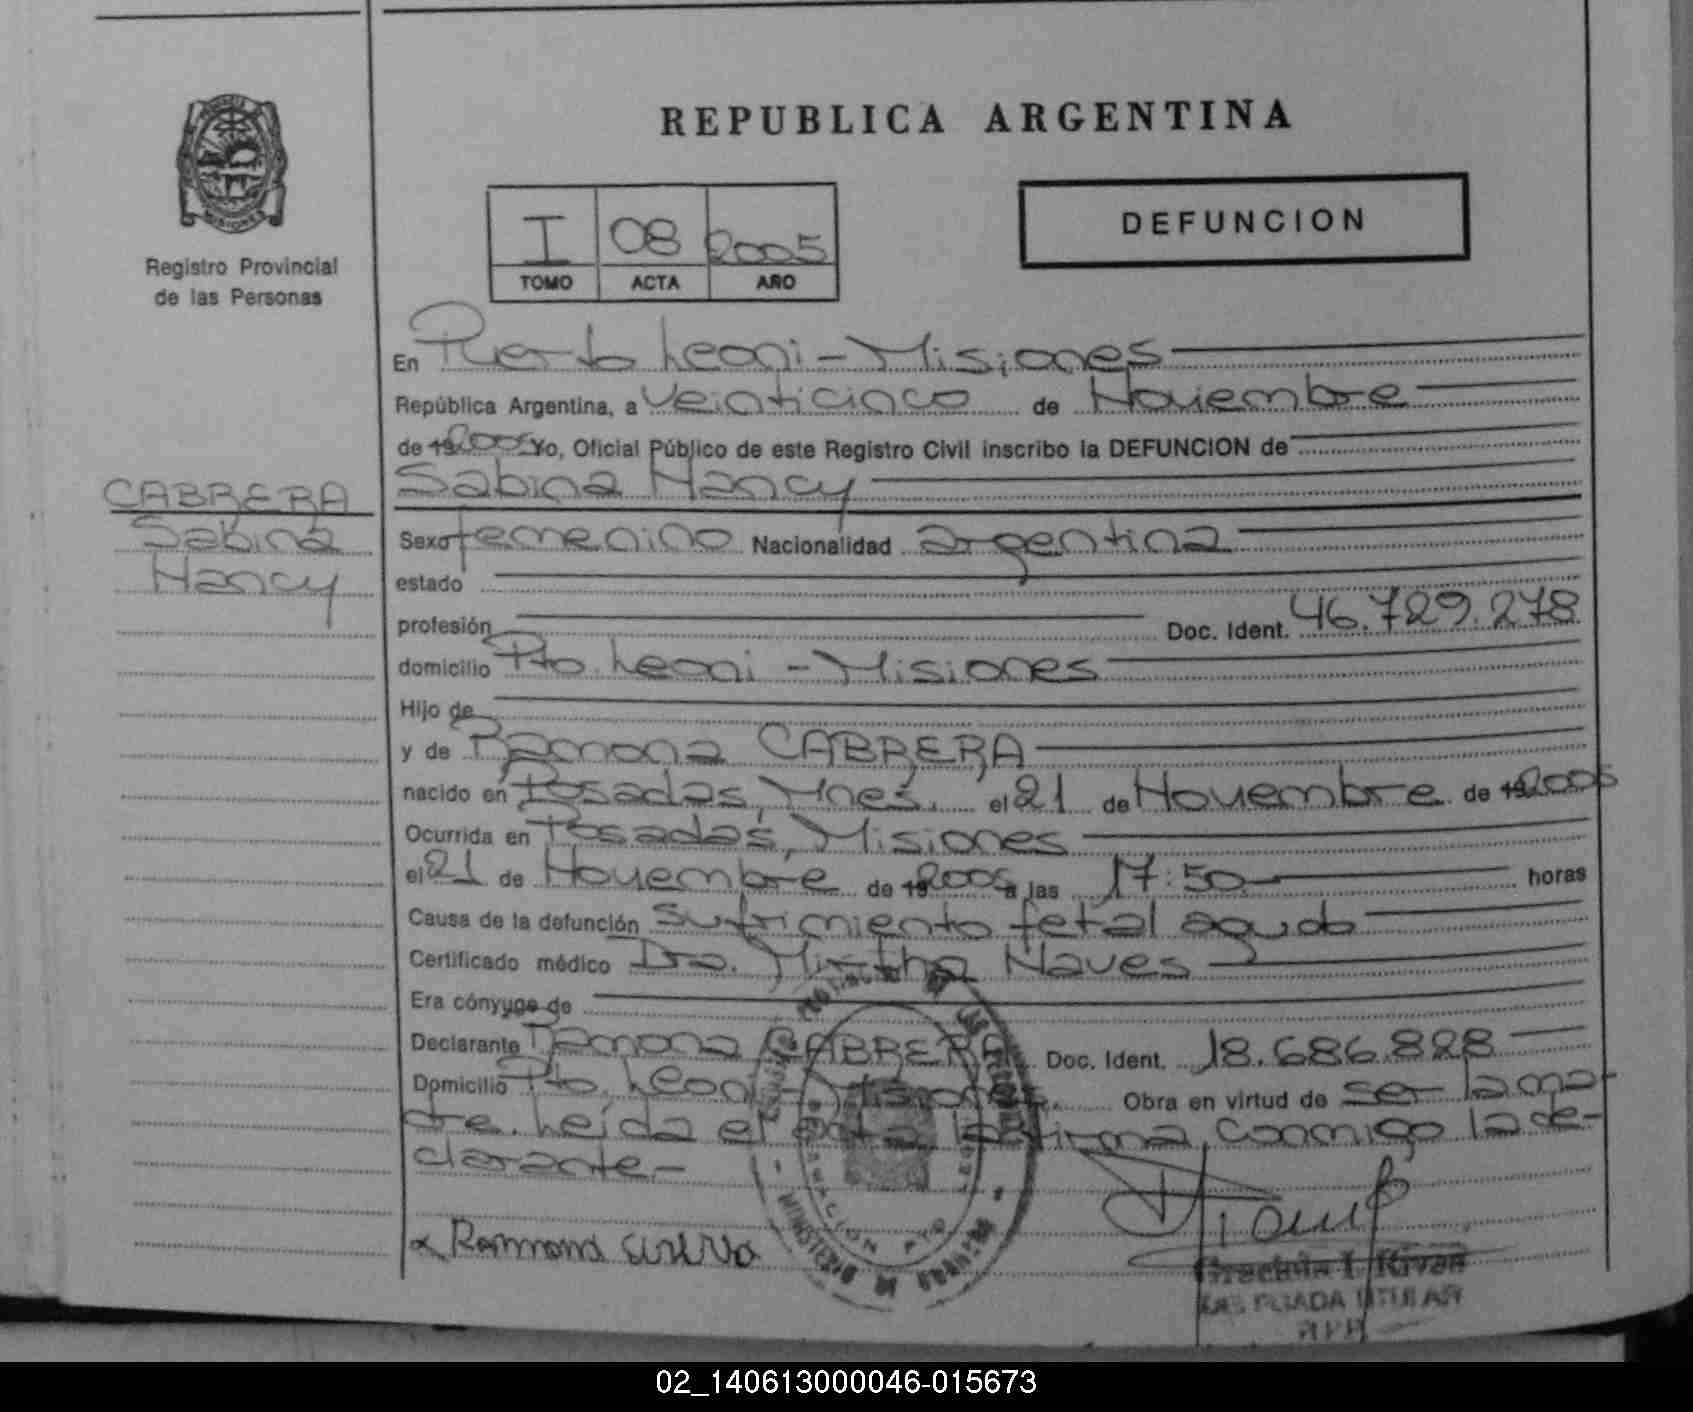 REPUBLICA ARGENTINA
I 08 2005
TOMO ACTA AÑO
DEFUNCION
Registro Provincial
de las Personas
CABRERA
Sabina
Nancy
En Puerto Leoni - Misiones
República Argentina, a veinticinco de Noviembre
de 19 2005 Yo, Oficial Público de este Registro Civil inscribo la DEFUNCION de
Sabina Nancy
Sexo femenino Nacionalidad argentina
estado
profesión Doc. Ident. 46.729.278
domicilio Pto. Leoni - Misiones
Hijo de
y de Ramona CABRERA
nacido en Posadas, Mnes. el 21 de Noviembre de 19 2005
Ocurrida en Posadas, Misiones
el 21 de Noviembre de 19 2005 a las 17:50 horas
Causa de la defunción Sufrimiento fetal agudo
Certificado médico Dra. Mirtha Naves
Era cónyuge de
Declarante Ramona CABRERA Doc. Ident. 18.686.828
Domicilio Pto. Leoni - Misiones. Obra en virtud de ser la ma-
dre. Leída el acta la firma conmigo la de-
clarante.-
MINISTERIO DE GOBIERNO
x Ramona
TITULAR
02_140613000046-015673